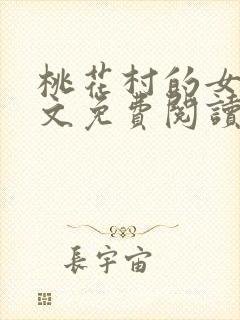 桃花村的女
文免費閱讀
長宇宙